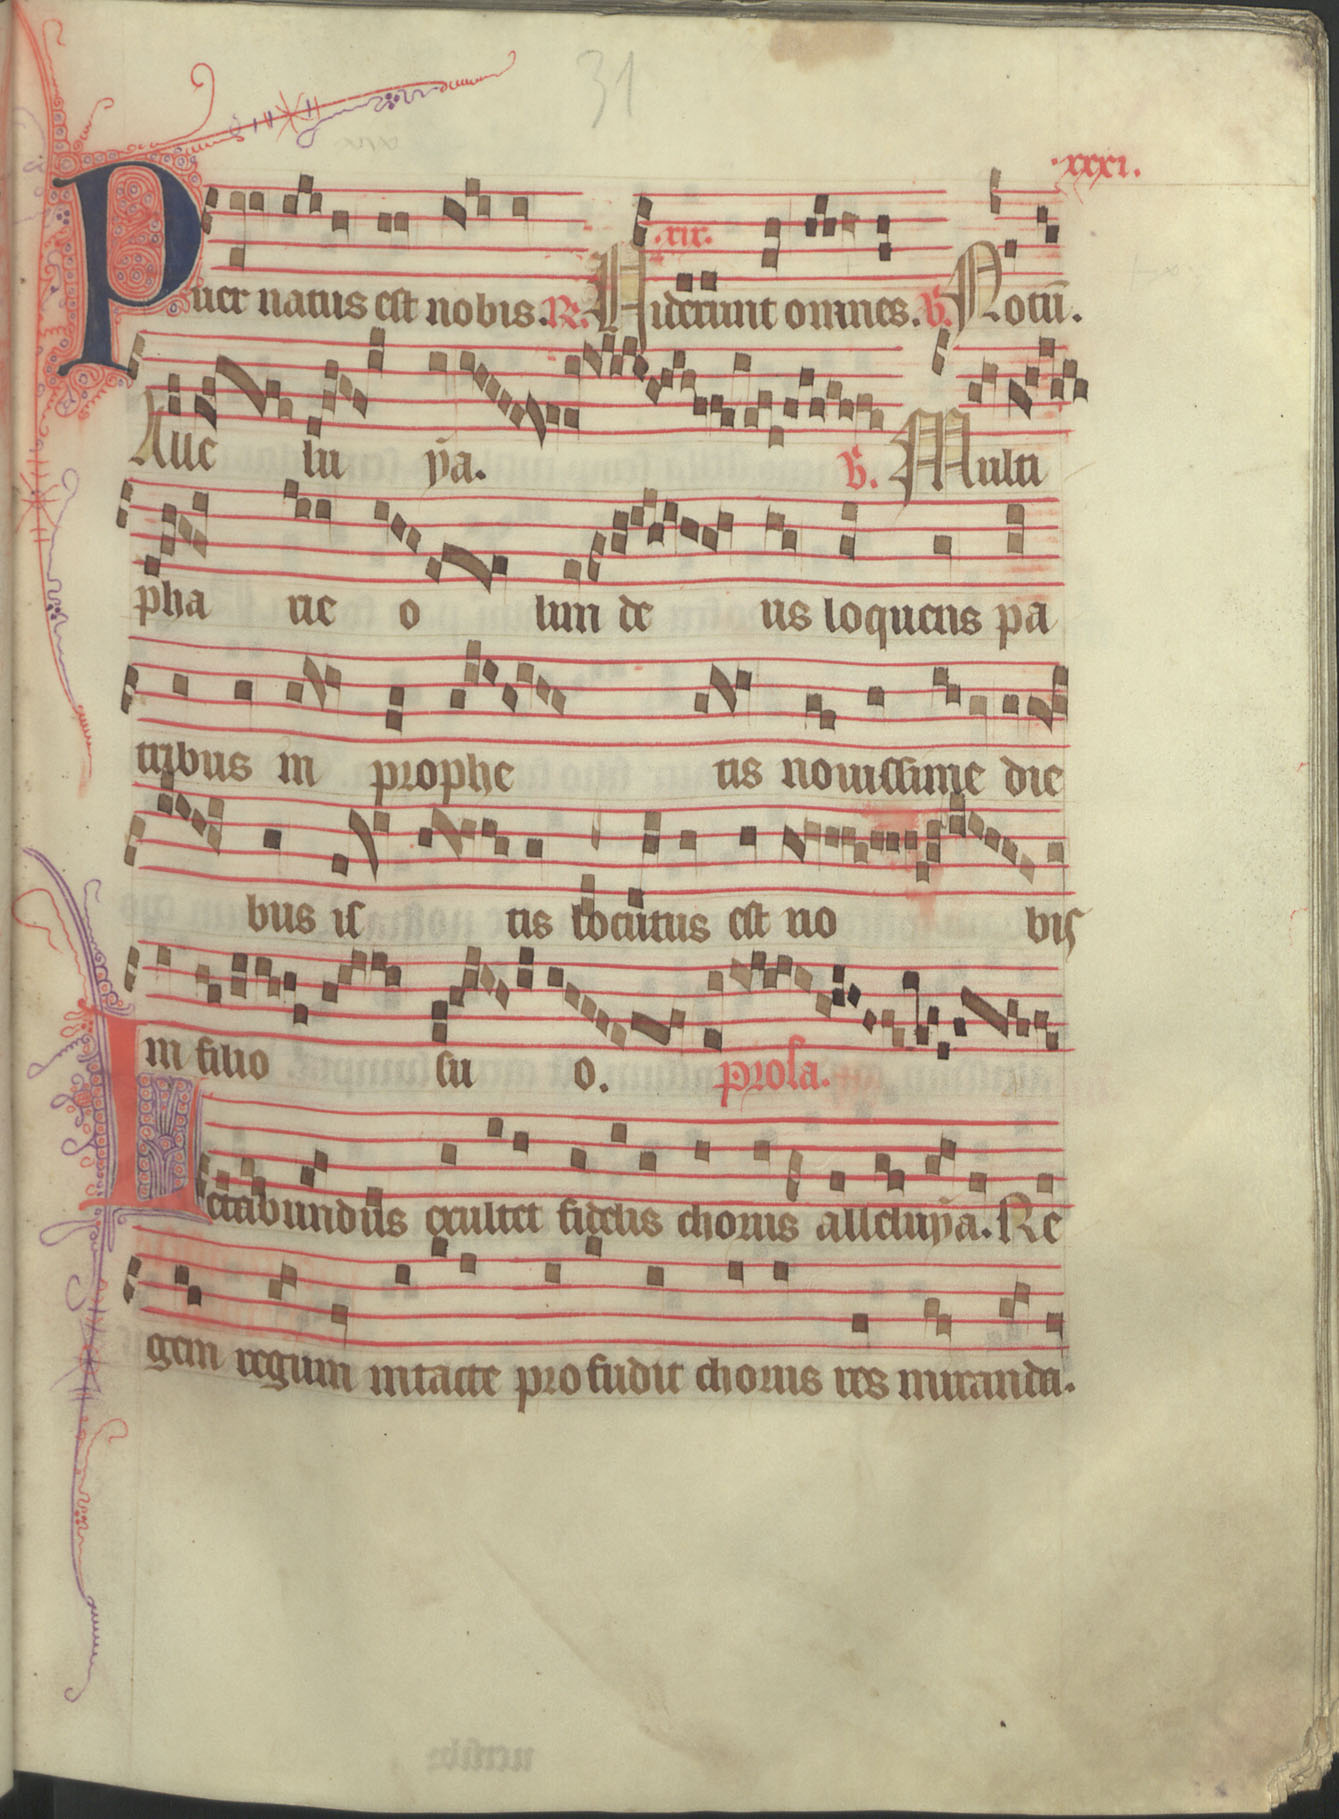 31
.xxxi.
.xix.
Puer natus est nobis. R. Viderunt omnes. V. Notū.
Alle lu ya. V. Multi
pha rie o lim de us loquens pa
tribus in prophe tis novissime die
bus is tis locutus est no bis
in filio su o. prosa.
Letabundus exultet fidelis chorus alleluya. Re
gem regum intacte profudit chorus res miranda.